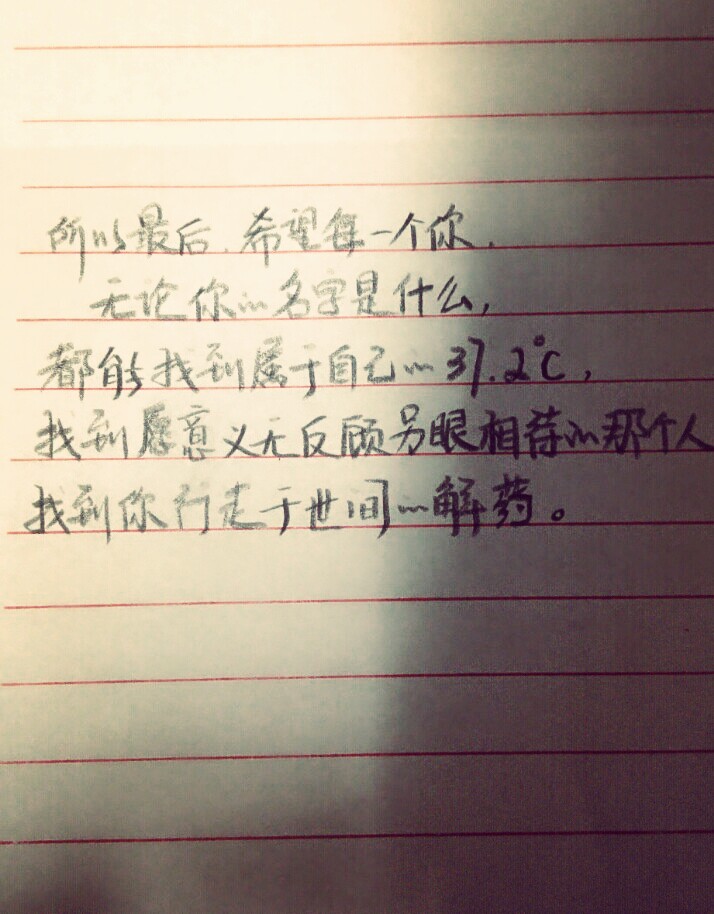 所以最后，希望每一个你，
无论你的名字是什么，
都能找到属于自己的37.2℃，
找到愿意义无反顾另眼相待的那个人
找到你行走于世间的解药。